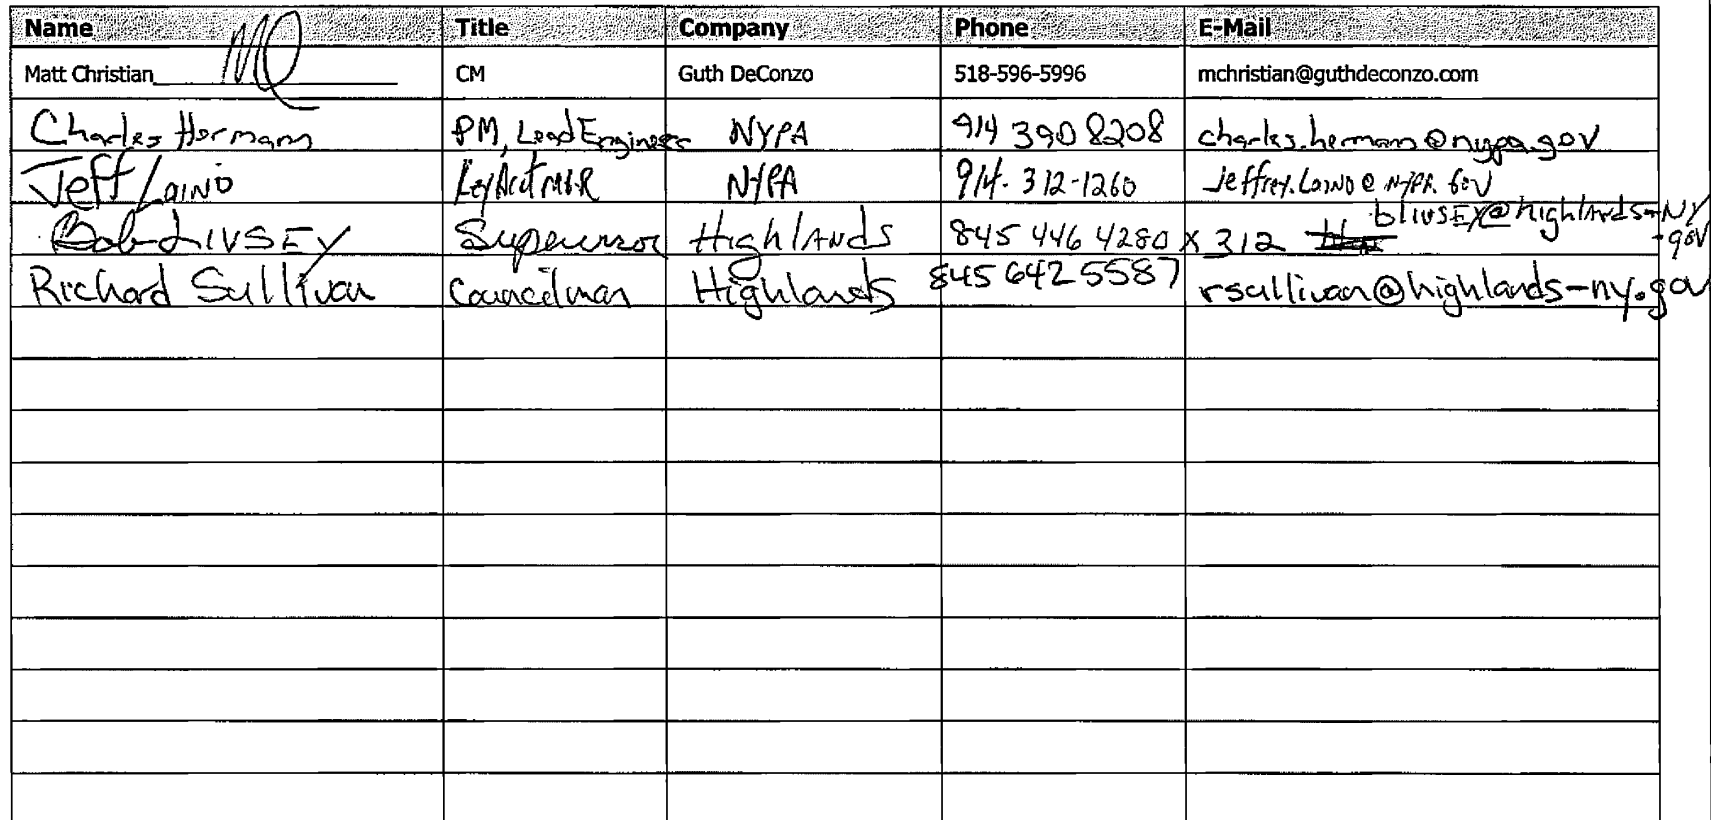 Name Title Company Phone E-Mail
Matt Christian MC CM Guth DeConzo 518-596-5996 mchristian@guthdeconzo.com
Charles Hermann PM, Lead Engineer NYPA 914 390 8208 charles.hermann@nypa.gov
Jeff Laino Key Acct MGR NYPA 914-312-1260 Jeffrey.Laino@NYPA.Gov
Bob LIVSEY Supervisor HighlANds 845 446 4280 X 312 blivsEy@highlands-NY-gov
Richard Sullivan Councilman Highlands 845 642 5587 rsullivan@highlands-ny.gov